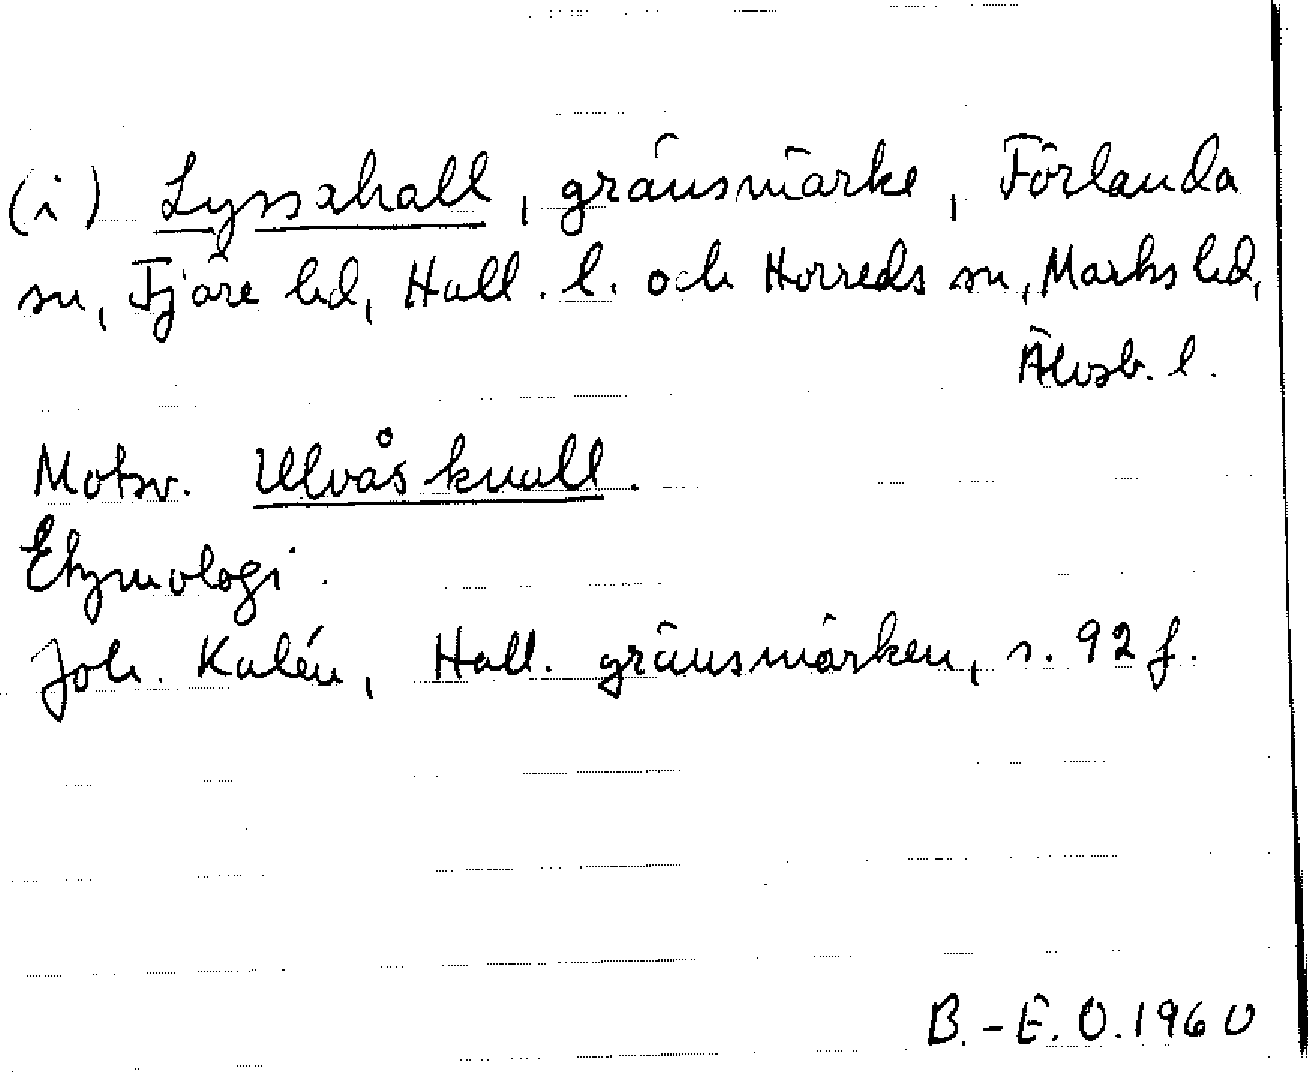 (i) Lyssahall, gränsmärke, Förlanda
sn, Fjäre hd, Hall. l. och Horreds sn, Marks hd,
Älvsb. l.
Motsv. Ulvås knall.
Etymologi.
Joh. Kalén, Hall. gränsmärken, s. 92 f.
B.-E. O. 1960